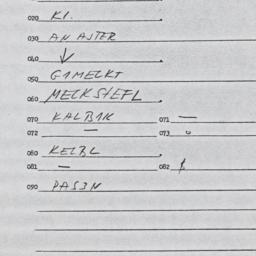 020 K1.
030 AN ASTER
040 ↓
050 G1MECKT
060 MECKSIEFL
070 KALB1K 071 —
072 — 073
080 KELBL
081 — 082
090 PAS3N